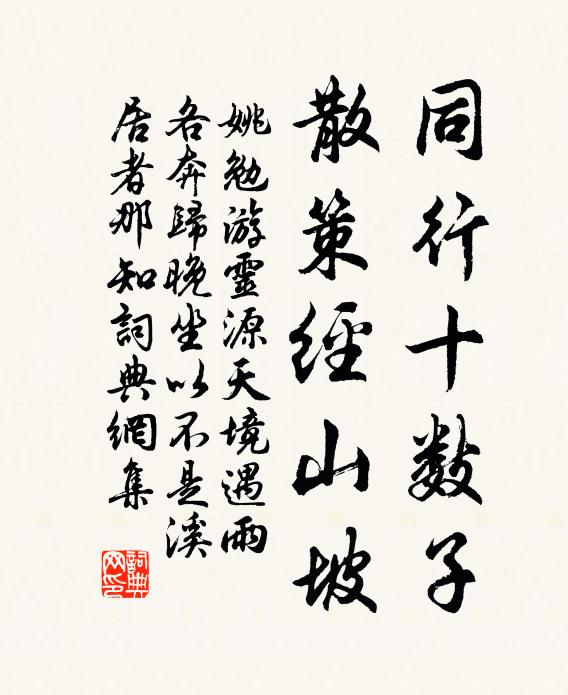 同行十数子
散策經山坡
姚勉游靈源天境遇雨
各奔歸晚坐以不是溪
居者那知詞典網集
詞典
网印